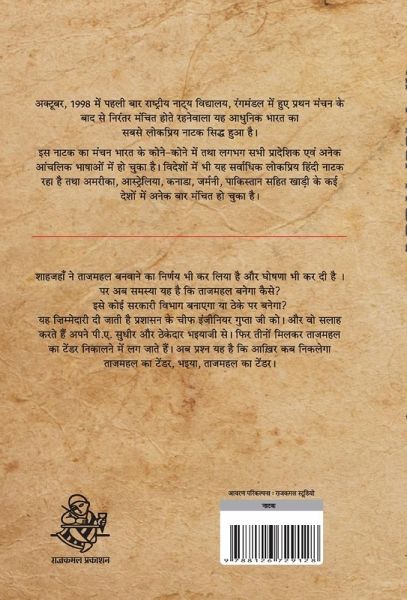 अक्टूबर, 1998 में पहली बार राष्ट्रीय नाट्य विद्यालय, रंगमंडल में हुए प्रथन मंचन के
बाद से निरंतर मंचित होते रहनेवाला यह आधुनिक भारत का
सबसे लोकप्रिय नाटक सिद्ध हुआ है।
इस नाटक का मंचन भारत के कोने-कोने में तथा लगभग सभी प्रादेशिक एवं अनेक
आंचलिक भाषाओं में हो चुका है। विदेशों में भी यह सर्वाधिक लोकप्रिय हिंदी नाटक
रहा है तथा अमरीका, आस्ट्रेलिया, कनाडा, जर्मनी, पाकिस्तान सहित खाड़ी के कई
देशों में अनेक बार मंचित हो चुका है।
शाहजहाँ ने ताजमहल बनवाने का निर्णय भी कर लिया है और घोषणा भी कर दी है ।
पर अब समस्या यह है कि ताजमहल बनेगा कैसे?
इसे कोई सरकारी विभाग बनाएगा या ठेके पर बनेगा?
यह ज़िम्मेदारी दी जाती है प्रशासन के चीफ इंजीनियर गुप्ता जी को। और वो सलाह
करते हैं अपने पी.ए. सुधीर और ठेकेदार भइयाजी से। फिर तीनों मिलकर ताजमहल
का टेंडर निकालने में लग जाते हैं। अब प्रश्न यह है कि आख़िर कब निकलेगा
ताजमहल का टेंडर, भइया, ताजमहल का टेंडर।
आवरण परिकल्पना : राजकमल स्टूडियो
नाटक
राजकमल प्रकाशन
9 788126 729128